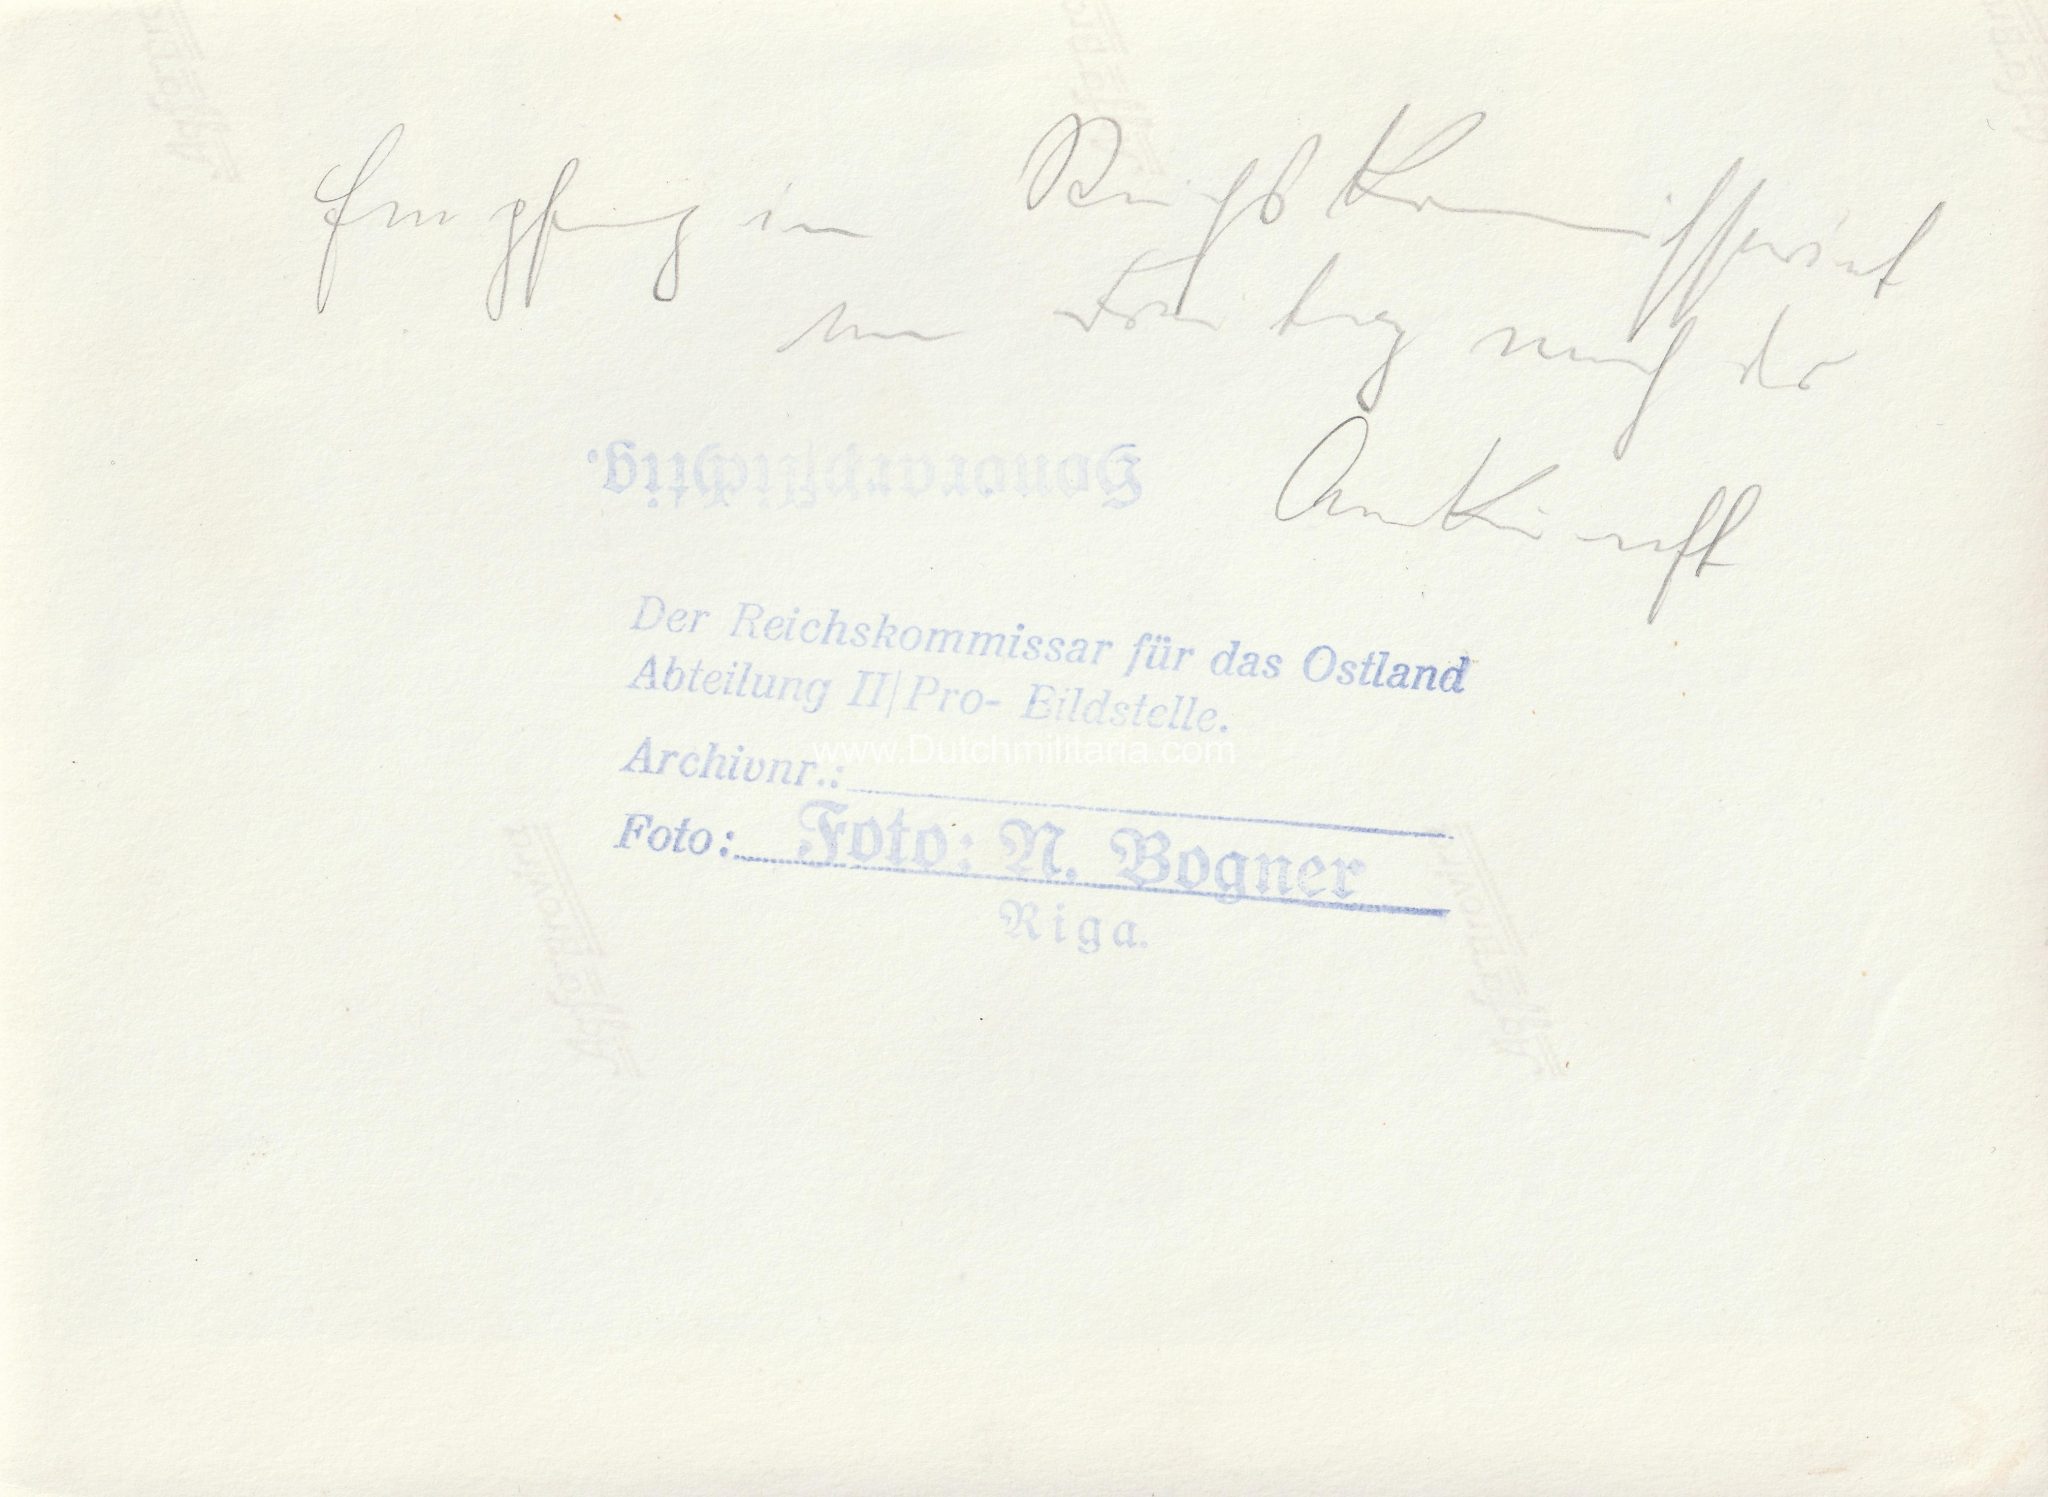 Empfang im Reichskommissariat
am Vormittag nach der
Ankunft
Honorarpflichtig.
Der Reichskommissar für das Ostland
Abteilung II/Pro- Bildstelle.
www.Dutchmilitaria.com
Archivnr.:
Foto: Foto: N. Bogner
Riga.